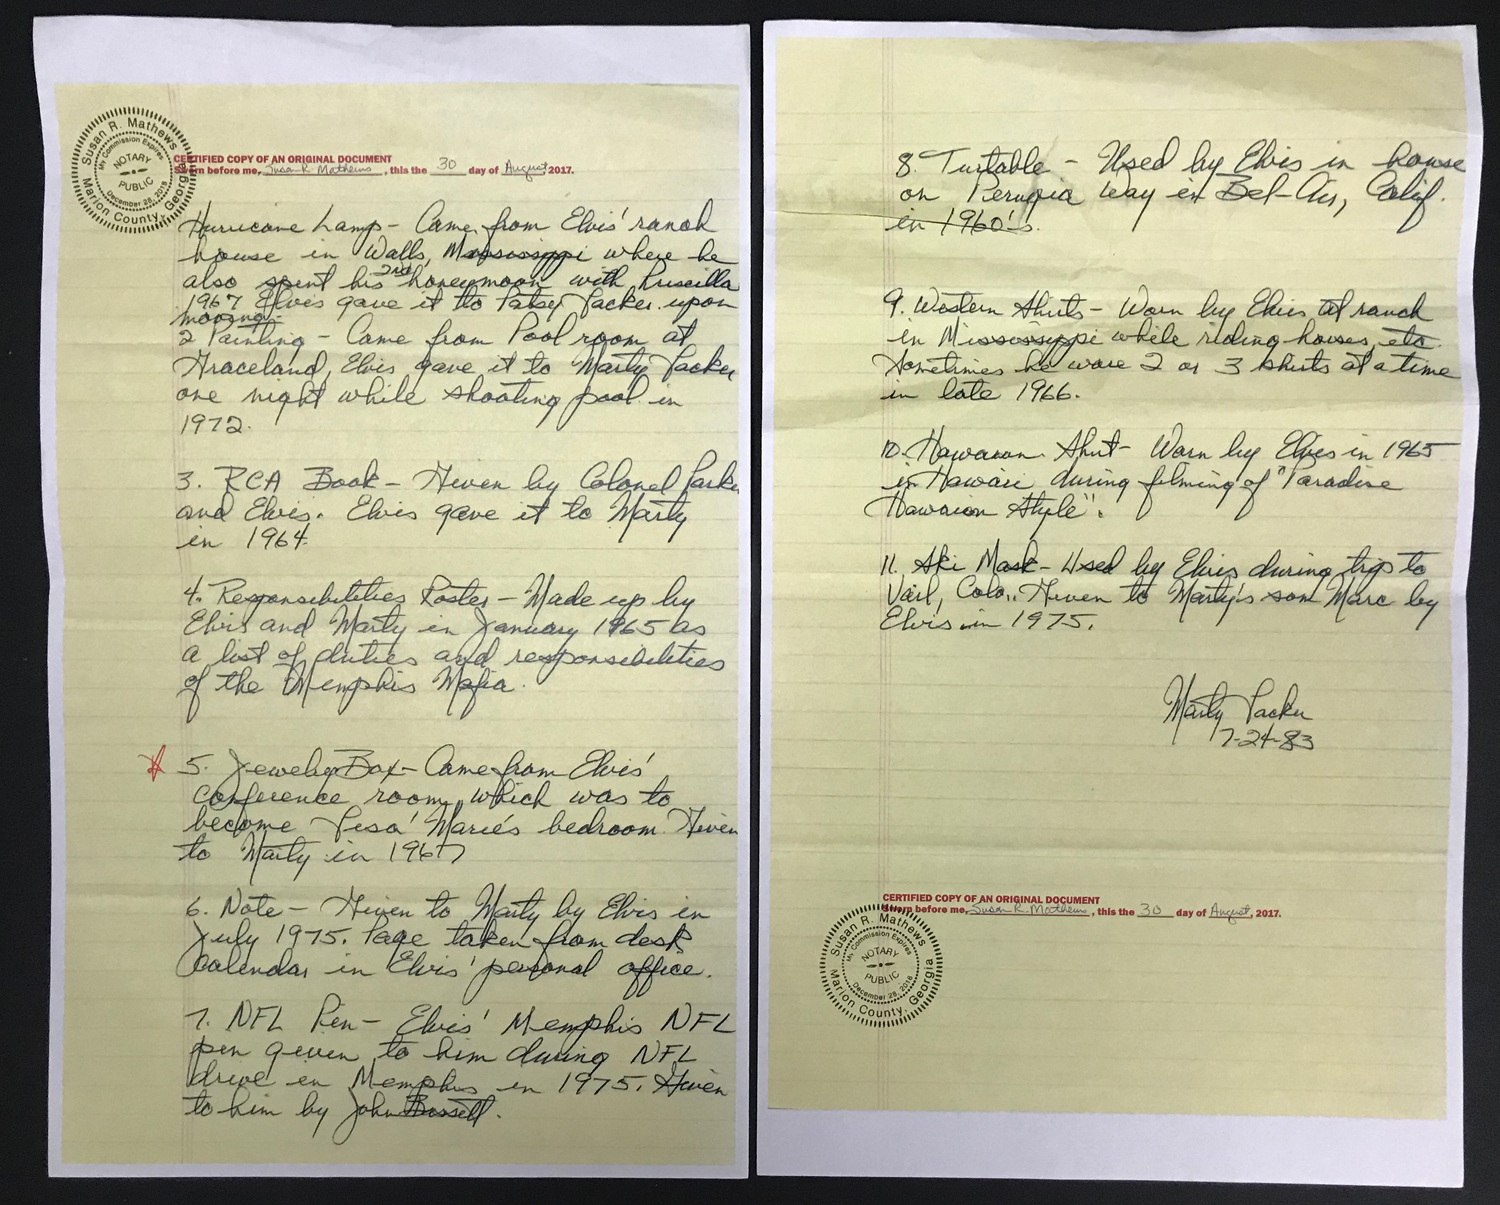 Susan R. Mathews
My Commission Expires
NOTARY
PUBLIC
December 28, 2018
Marion County, Georgia
CERTIFIED COPY OF AN ORIGINAL DOCUMENT
Sworn before me, Susan R. Mathews, this the 30 day of August 2017.
Hurricane Lamp - Came from Elvis' ranch
house in Walls, Mississippi where he
also spent his 2nd honeymoon with Priscilla
1967 Elvis gave it to Patsy Lacker upon
moving.
2 Painting - Came from Pool room at
Graceland, Elvis gave it to Marty Lacker
one night while shooting pool in
1972.
3. RCA Book - Given by Colonel Parker
and Elvis. Elvis gave it to Marty
in 1964.
4. Responsibilities Roster - Made up by
Elvis and Marty in January 1965 as
a list of duties and responsibilities
of the Memphis Mafia.
5. Jewelry Box - Came from Elvis'
conference room, which was to
become Lisa Marie's bedroom. Given
to Marty in 1967
6. Note - Given to Marty by Elvis in
July 1975. Page taken from desk
calendar in Elvis' personal office.
7. NFL Pen - Elvis' Memphis NFL
pen given to him during NFL
drive in Memphis in 1975. Given
to him by John Bassett.
8. Turtable - Used by Elvis in house
on Perugia Way in Bel-Air, Calif.
in 1960's.
9. Western Shirts - Worn by Elvis at ranch
in Mississippi while riding horses, etc.
Sometimes he wore 2 or 3 shirts at a time
in late 1966.
10. Hawaiian Shirt - Worn by Elvis in 1965
in Hawaii during filming of "Paradise
Hawaiian Style".
11. Ski Mask - Used by Elvis during trip to
Vail, Colo. Given to Marty's son Marc by
Elvis in 1975.
Marty Lacker
7-24-83
CERTIFIED COPY OF AN ORIGINAL DOCUMENT
Sworn before me, Susan R. Mathews, this the 30 day of August, 2017.
Susan R. Mathews
My Commission Expires
NOTARY
PUBLIC
December 28, 2018
Marion County, Georgia